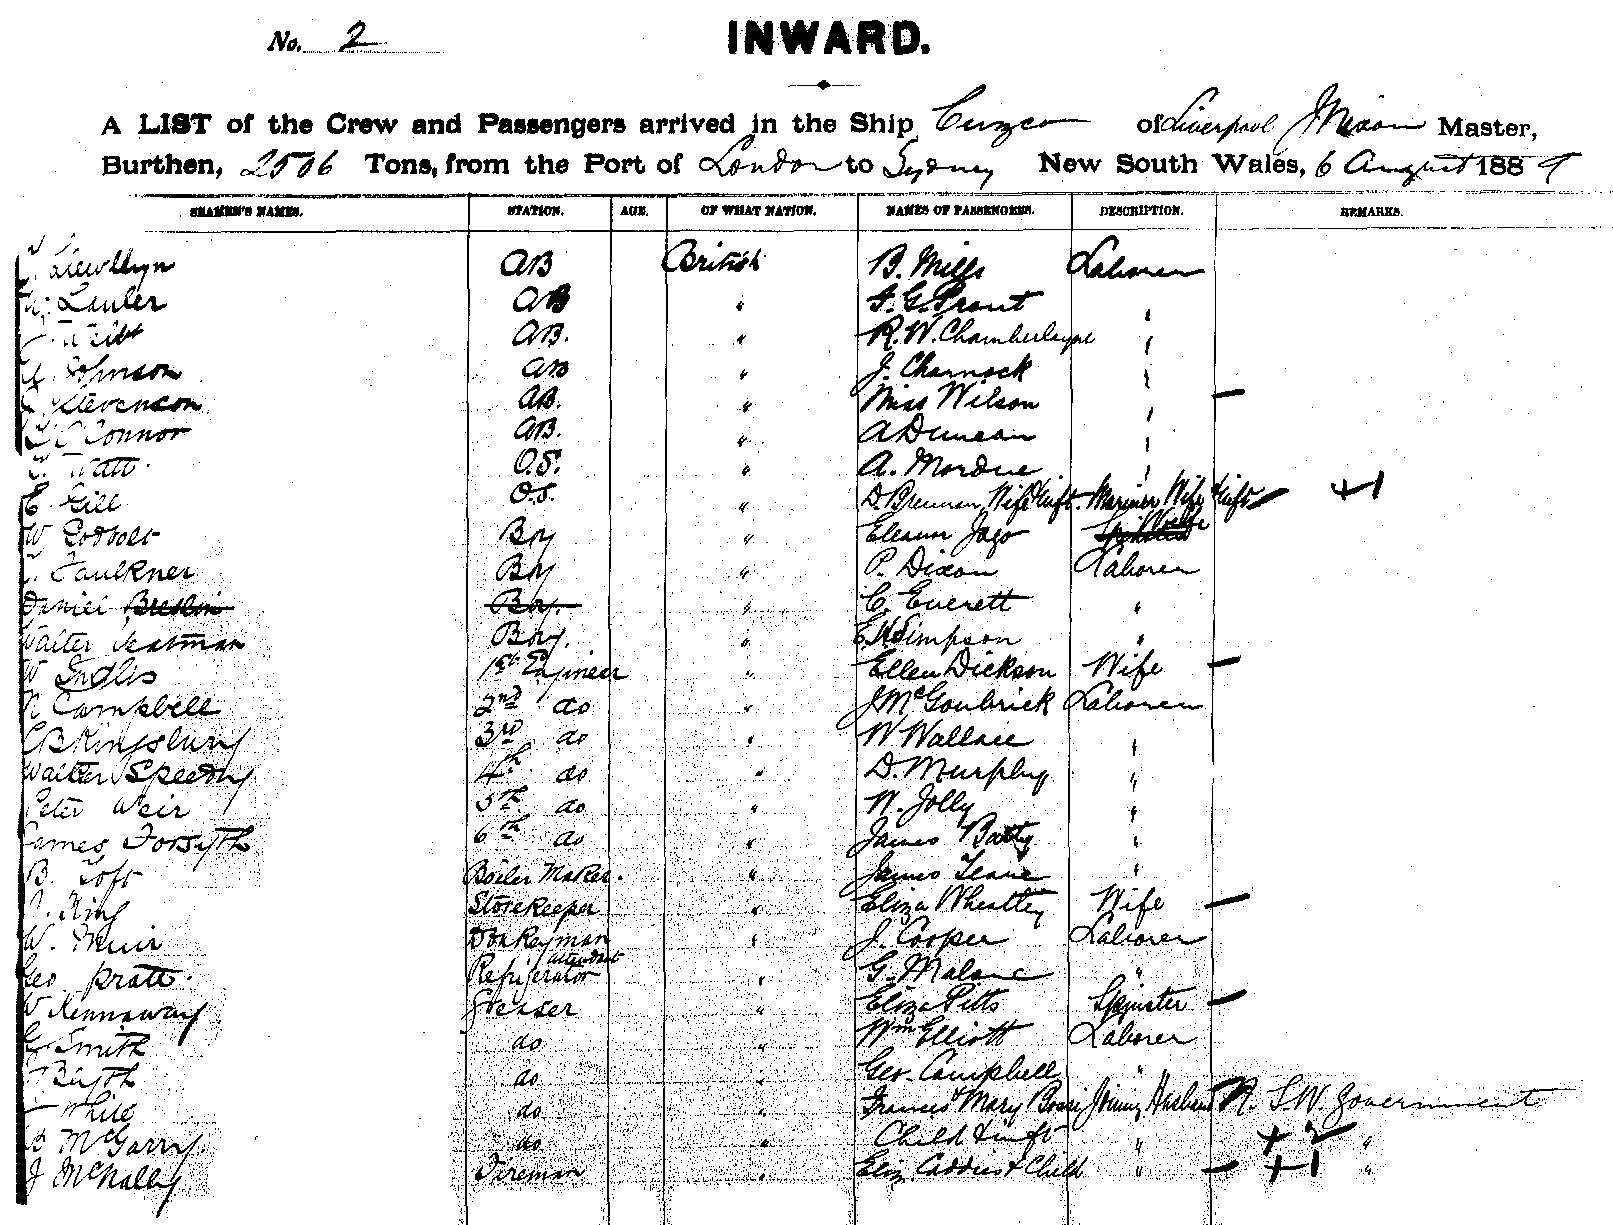 No. 2 INWARD.
A LIST of the Crew and Passengers arrived in the Ship Cuzco of Liverpool J Nixon Master,
Burthen, 2506 Tons, from the Port of London to Sydney New South Wales, 6 August 1889
SEAMEN'S NAMES. STATION. AGE. OF WHAT NATION. NAMES OF PASSENGERS. DESCRIPTION. REMARKS.
Llewellyn AB British B. Mills Laborer
Lawler AB " F. G. Prout "
AB. " R. W. Chamberlayne "
Johnson AB " J. Charnock "
Stevenson AB. " Miss Wilson " —
O'Connor AB. " A Duncan "
Watt O.S. " A. Mordue "
E. Gill O.S. " D. Brennan Wife & inft. Mariner Wife & inft — +1
W Godbolt Boy " Eleanor Jago Wife
Faulkner Boy " P. Dixon Laborer
Daniel Breslin Boy. " C. Everett "
Walter Yeatman Boy. " E. H. Simpson "
W Inglis 1st Engineer " Ellen Dickson Wife —
Campbell 2nd do " J McGoubrick Laborer
C B Kingsbury 3rd do " W Wallace "
Walter Speedy 4th do " D. Murphy "
Peter Weir 5th do " W. Jolly "
James Forsyth 6th do " James Batty "
B. Toft Boiler Maker. " James Teane "
King Storekeeper " Eliza Wheatley Wife —
W. Muir Donkeyman " J. Cooper Laborer
Geo Pratt Refrigerator attendant " G. Malone "
W Kennaway Greaser " Eliza Pitts Spinster —
G Smith do " Wm Elliott Laborer
Blyth do " Geo. Campbell "
White do " Frances Mary Joining Husband N. S W. Government
B McGarry do " Child & inft " +2 "
J McNally Fireman " Eliz. Caddis & Child " — +1 "